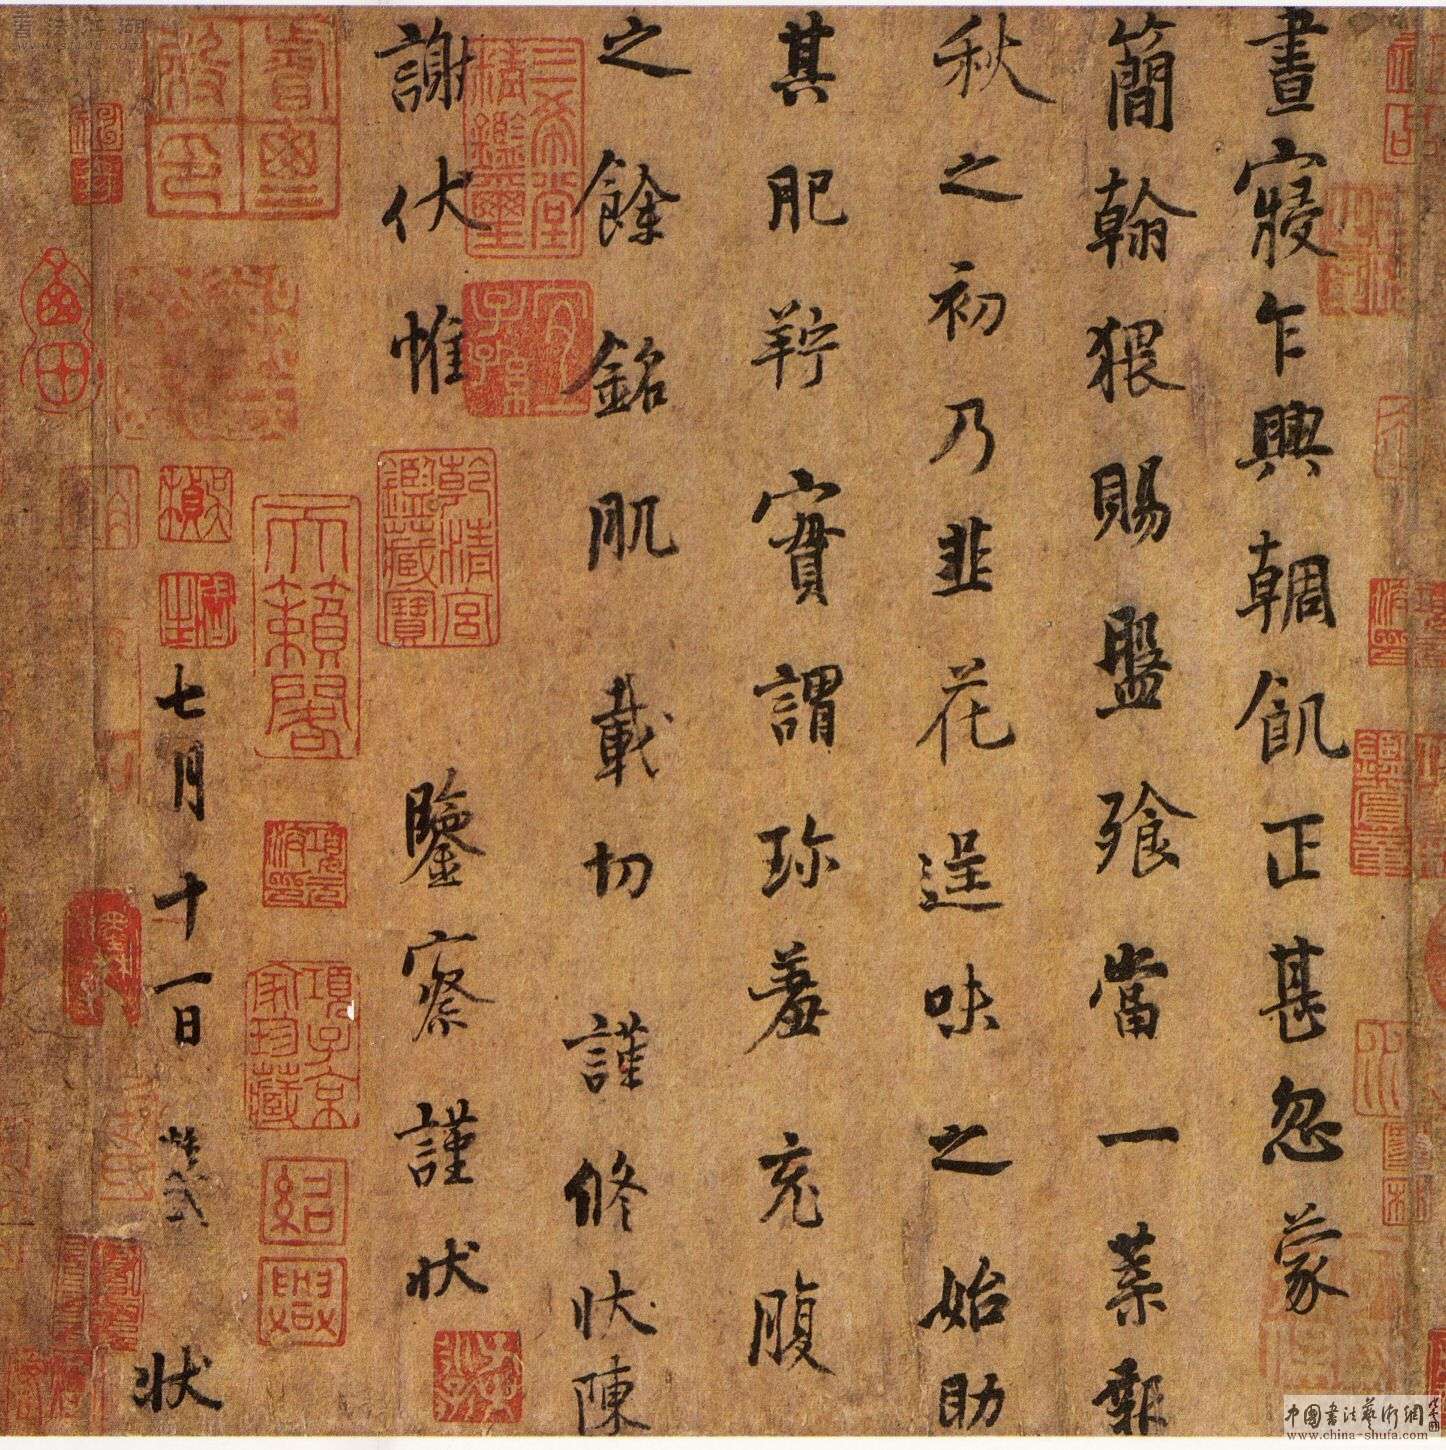 晝寢乍興輖飢正甚忽蒙
簡翰猥賜盤飧當一葉報
秋之初乃韭花逞味之始助
其肥羜實謂珍羞充腹
之餘銘肌載切謹修狀陳
謝伏惟鑒察謹狀
七月十一日狀
三希堂精鑑璽
宜子孫
乾清宮鑑藏寶
天籟閣
項子京家珍藏
紹興
中國書法藝術網
www.china-shufa.com